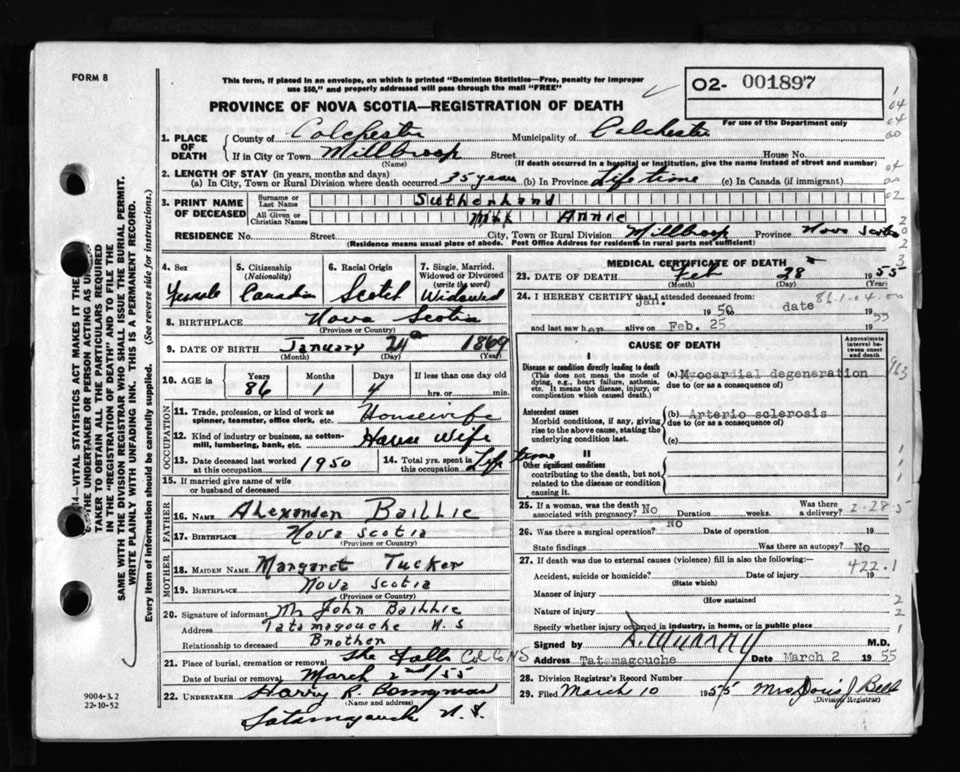 FORM 8
This form, if placed in an envelope, on which is printed "Dominion Statistics—Free, penalty for improper
use $50," and properly addressed will pass through the mail "FREE"
PROVINCE OF NOVA SCOTIA—REGISTRATION OF DEATH
02- 001897
For use of the Department only
1. PLACE OF DEATH County of Colchester Municipality of Colchester
If in City or Town Millbrook Street House No.
(Name) (If death occurred in a hospital or institution, give the name instead of street and number)
2. LENGTH OF STAY (in years, months and days)
(a) In City, Town or Rural Division where death occurred 35 years (b) In Province Life time (c) In Canada (if immigrant)
3. PRINT NAME OF DECEASED Surname or Last Name Sutherland
All Given or Christian Names Annie
RESIDENCE No. Street City, Town or Rural Division Millbrook Province Nova Scotia
(Residence means usual place of abode. Post Office Address for residents in rural parts not sufficient)
4. Sex Female
5. Citizenship (Nationality) Canadian
6. Racial Origin Scotch
7. Single, Married, Widowed or Divorced (write the word) Widowed
8. BIRTHPLACE Nova Scotia
(Province or Country)
9. DATE OF BIRTH January 24 1869
(Month) (Day) (Year)
10. AGE in Years 86 Months 1 Days 4 If less than one day old hrs. or min.
OCCUPATION
11. Trade, profession, or kind of work as spinner, teamster, office clerk, etc. Housewife
12. Kind of industry or business, as cotton-mill, lumbering, bank, etc. House Wife
13. Date deceased last worked at this occupation 1950
14. Total yrs. spent in this occupation Life time
15. If married give name of wife or husband of deceased
FATHER
16. NAME Alexander Baillie
17. BIRTHPLACE Nova Scotia
(Province or Country)
MOTHER
18. MAIDEN NAME Margaret Tucker
19. BIRTHPLACE Nova Scotia
(Province or Country)
20. Signature of informant Mr John Baillie
Address Tatamagouche N.S
Relationship to deceased Brother
21. Place of burial, cremation or removal The Falls Col Co NS
Date of burial or removal March 2nd/55
22. UNDERTAKER Harry R. Bonnyman
(Name and address)
Tatamagouche N.S.
MEDICAL CERTIFICATE OF DEATH
23. DATE OF DEATH Feb 28 1955
(Month) (Day)
24. I HEREBY CERTIFY that I attended deceased from:
Jan. 1950 date 1955
and last saw her alive on Feb. 25 19
86-1-04-00
CAUSE OF DEATH
Approximate interval between onset and death
I
Disease or condition directly leading to death
(This does not mean the mode of dying, e.g., heart failure, asthenia, etc. It means the disease, injury, or complication which caused death.)
(a) Myocardial degeneration
due to (or as a consequence of)
Antecedent causes
Morbid conditions, if any, giving rise to the above cause, stating the underlying condition last.
(b) Arterio sclerosis
due to (or as a consequence of)
(c)
II
Other significant conditions
contributing to the death, but not related to the disease or condition causing it.
25. If a woman, was the death associated with pregnancy? No Duration weeks. Was there a delivery?
26. Was there a surgical operation? NO Date of operation 19
State findings Was there an autopsy? No
27. If death was due to external causes (violence) fill in also the following:
422.1
Accident, suicide or homicide? Date of injury 19
(State which)
Manner of injury
(How sustained)
Nature of injury
Specify whether injury occurred in industry, in home, or in public place
Signed by A. Murray M.D.
Address Tatamagouche Date March 2 1955
28. Division Registrar's Record Number
29. Filed March 10 1955 Mrs Doris J Bell
(Division Registrar)
9004-3.2
22-10-52
VITAL STATISTICS ACT MAKES IT THE
THE UNDERTAKER OR PERSON ACTING AS
TAKER TO OBTAIN ALL THE PARTICULARS REQUIRED
IN THE "REGISTRATION OF DEATH" AND TO FILE THE
SAME WITH THE DIVISION REGISTRAR WHO SHALL ISSUE THE BURIAL PERMIT.
WRITE PLAINLY WITH UNFADING INK. THIS IS A PERMANENT RECORD.
Every item of information should be carefully supplied. (See reverse side for instructions.)